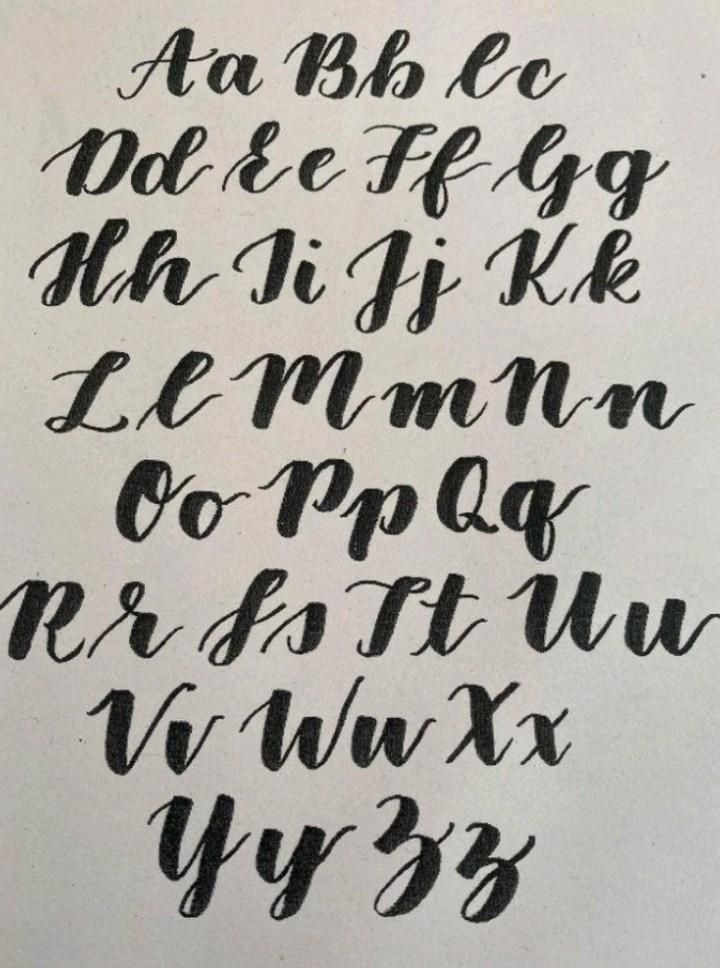 Aa Bb Cc
Dd Ee Ff Gg
Hh Ii Jj Kk
Ll Mm Nn
Oo Pp Qq
Rr Ss Tt Uu
Vv Ww Xx
Yy Zz